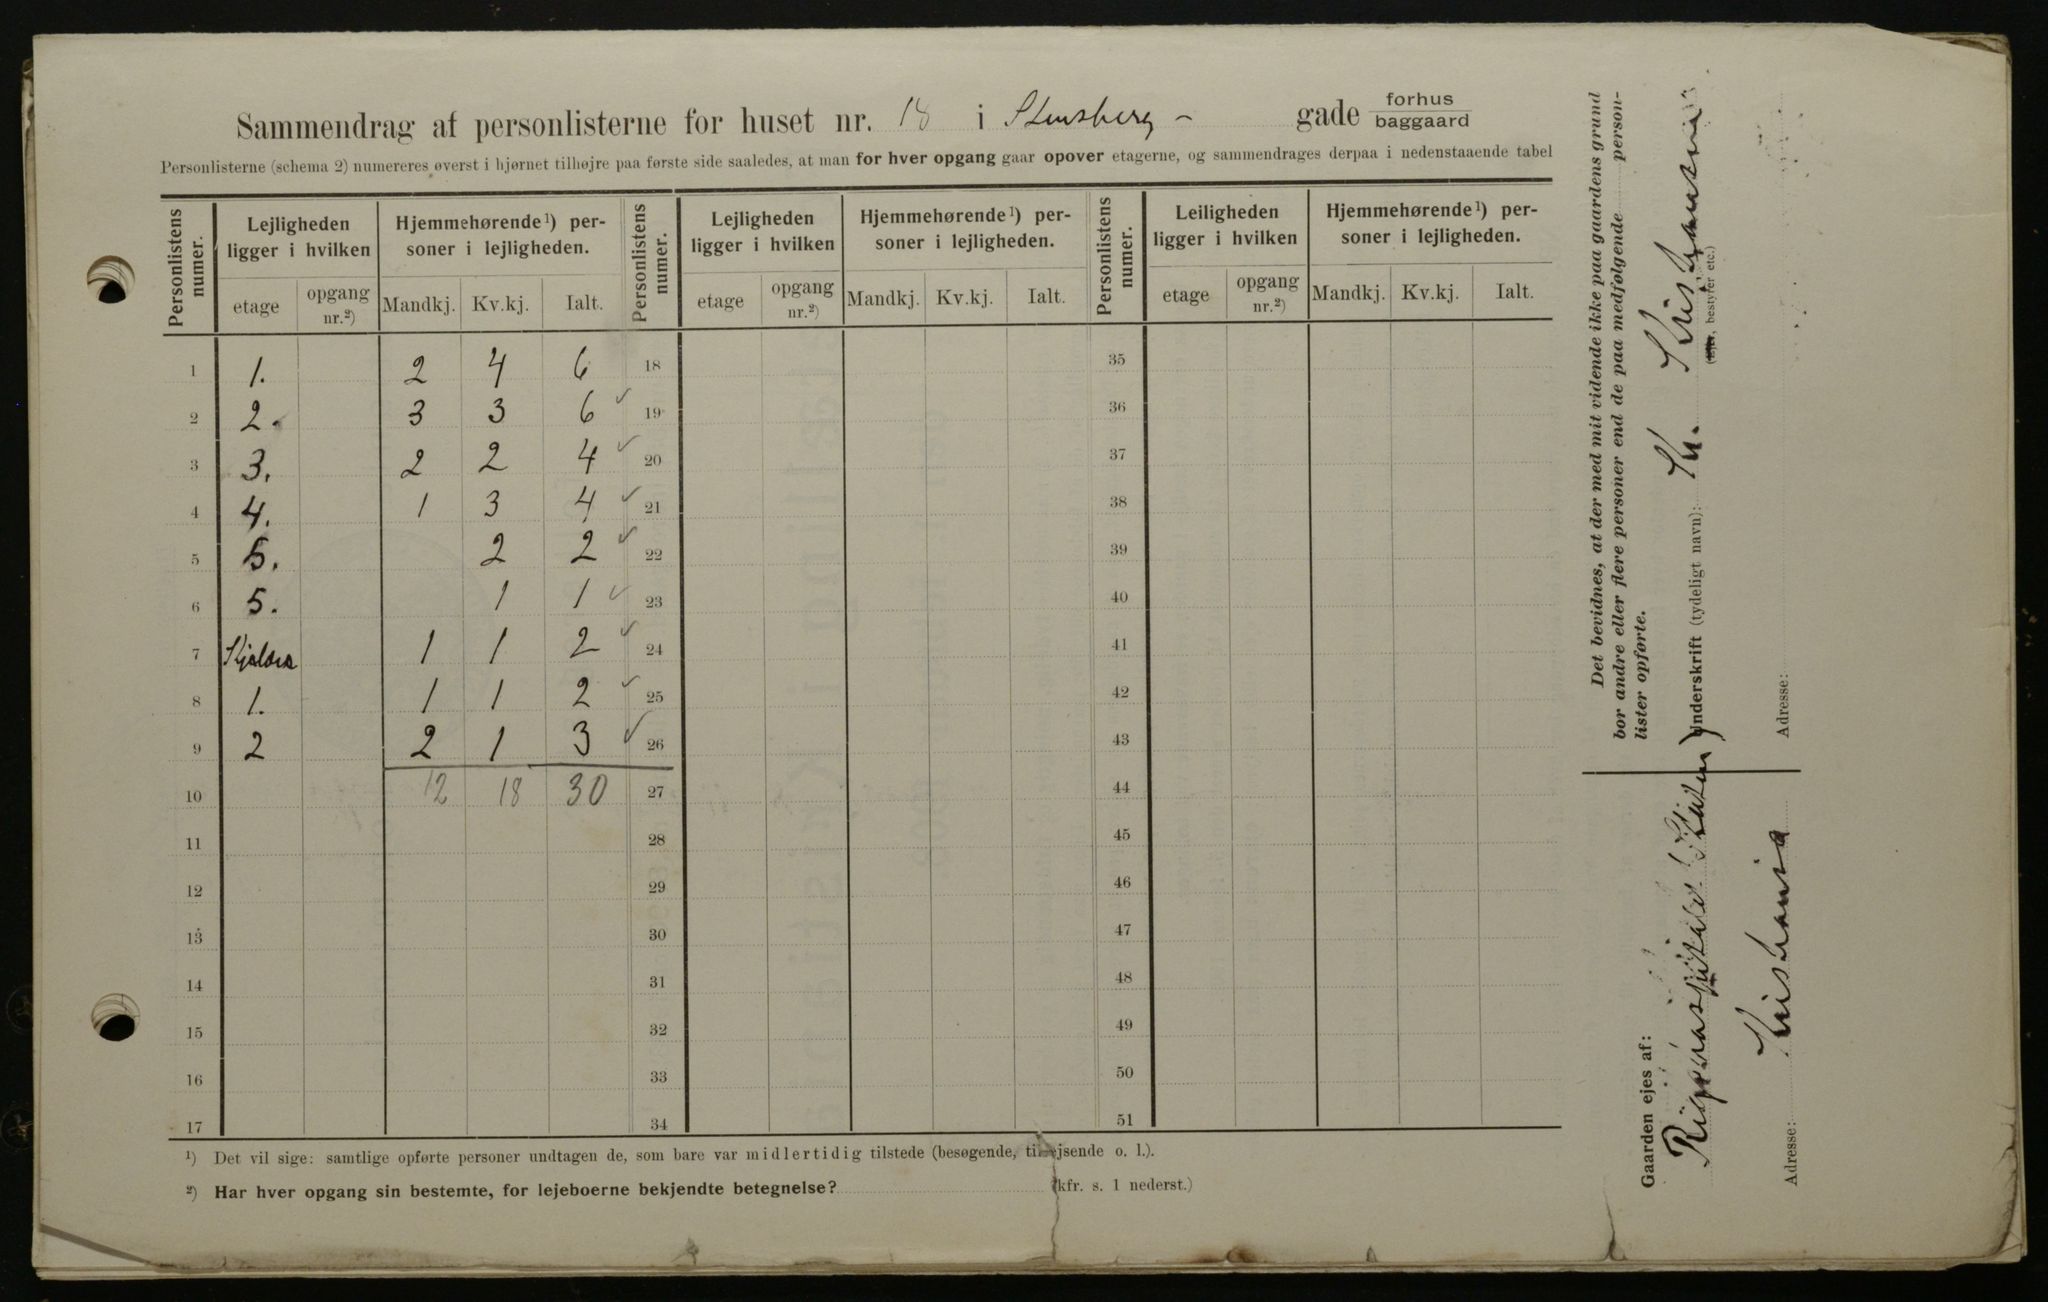 Sammendrag af personlisterne for huset nr. 18 i Stensberg - gade forhus baggaard
Personlisterne (schema 2) numereres øverst i hjørnet tilhøjre paa første side saaledes, at man for hver opgang gaar opover etagerne, og sammendrages derpaa i nedenstaaende tabel
Personlistens numer. Lejligheden ligger i hvilken Hjemmehørende ¹) personer i lejligheden. Personlistens numer. Lejligheden ligger i hvilken Hjemmehørende ¹) personer i lejligheden. Personlistens numer. Leiligheden ligger i hvilken Hjemmehørende ¹) personer i lejligheden.
etage opgang nr.²) Mandkj. Kv.kj. Ialt. etage opgang nr.²) Mandkj. Kv.kj. Ialt. etage opgang nr.²) Mandkj. Kv.kj. Ialt.
1 1. 2 4 6 18 35
2 2. 3 3 6 ✓ 19 36
3 3. 2 2 4 ✓ 20 37
4 4. 1 3 4 ✓ 21 38
5 5. 2 2 ✓ 22 39
6 5. 1 1 ✓ 23 40
7 Kjelder 1 1 2 ✓ 24 41
8 1. 1 1 2 ✓ 25 42
9 2 2 1 3 ✓ 26 43
10 12 18 30 27 44
11 28 45
12 29 46
13 30 47
14 31 48
15 32 49
16 33 50
17 34 51
¹) Det vil sige: samtlige opførte personer undtagen de, som bare var midlertidig tilstede (besøgende, tilrejsende o. l.).
²) Har hver opgang sin bestemte, for lejeboerne bekjendte betegnelse? (kfr. s. 1 nederst.)
Det bevidnes, at der med mit vidende ikke paa gaardens grund
bor andre eller flere personer end de paa medfølgende person-
lister opførte.
Underskrift (tydeligt navn): Kr. Kristiansen
(ejer, bestyrer etc.)
Adresse:
Gaarden ejes af:
Rigshospitalet (Staten)
Adresse: Kristiania